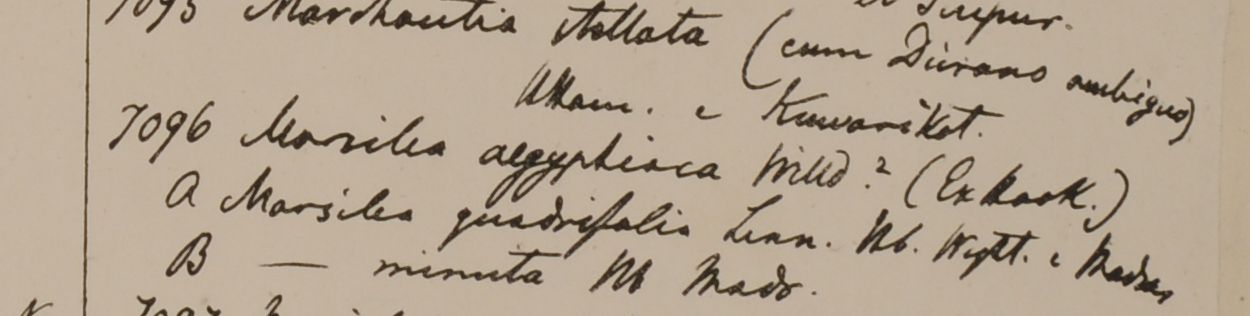 et Sirpur.
7095 Marchantia stellata (cum Dicrano ambiguo)
Wkam. e Kuwarikot.
7096 Marsilea aegyptiaca Willd.? (Ex Hook.)
A Marsilea quadrifolia Linn. Hb. Wight. e Madras
B — minuta Hb Madr.
7097